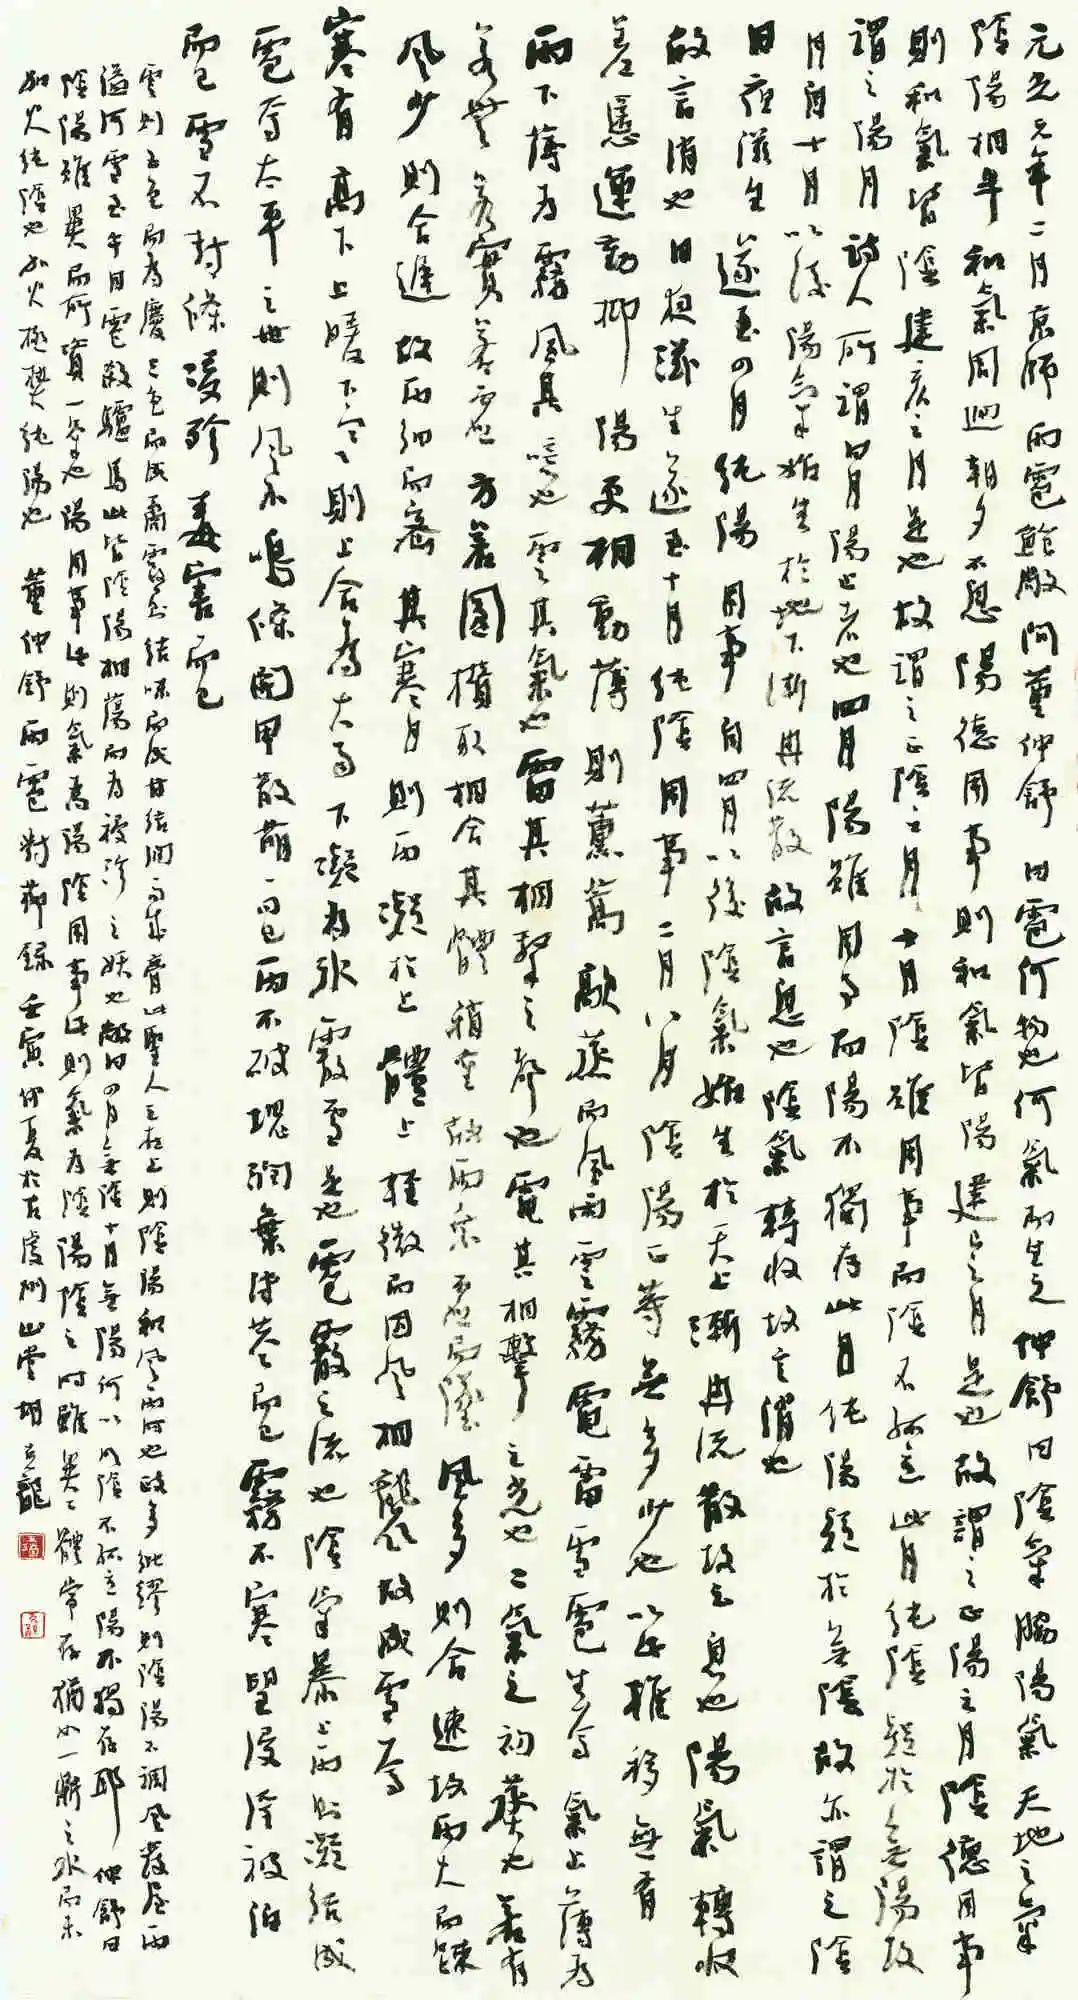 元光元年二月京師雨雹鮑敞問董仲舒曰雹何物也何氣而生之仲舒曰陰氣脇陽氣天地之氣
陰陽相半和氣周迴朝夕不息陽德用事則和氣皆陽建巳之月是也故謂之正陽之月陰德用事
則和氣皆陰建亥之月是也故謂之正陰之月十月陰雖用事而陰不孤立此月純陰疑於無陽故
謂之陽月詩人所謂日月陽止者也四月陽雖用事而陽不獨存此月純陽疑於無陰故亦謂之陰
月自十月以後陽氣始生於地下漸冉流散故言息也陰氣轉收故言消也
日夜滋生遂至四月純陽用事自四月以後陰氣始生於天上漸冉流散故云息也陽氣轉收
故言消也日夜滋生遂至十月純陰用事二月八月陰陽正等無多少也以此推移無有
差慝運動抑陽更相動薄則薰蒿歊蒸而風雨雲霧電雷雪雹生焉氣上薄為
雨下薄為霧風其噫也雲其氣也雷其相擊之聲也電其相擊之光也二氣之初蒸也若有
若無若實若虛方若圓攢聚相合其體稍重故雨乘虛而墜風多則合速故雨大而疎
風少則合遲故雨細而密其寒月則雨凝於上體上輕微而因風相襲故成雪焉
寒有高下上暖下寒則上合為大雨下凝為冰霰雪是也雹霰之流也陰氣暴上雨則凝結成
雹焉太平之世則風不鳴條開甲散萌而已雨不破塊潤葉津莖而已霧不寒望浸淫被泊
而已雪不封條凌殄毒害而已
雲則五色而為慶三色而成矞露則結味而成甘結潤而成膏此聖人之在上則陰陽和風雨時也政多紕繆則陰陽不調風發屋雨
溢河雪至牛目雹殺驢馬此皆陰陽相蕩而為祲沴之妖也敞曰四月無陰十月無陽何以明陰不孤立陽不獨存耶仲舒曰
陰陽雖異而所資一氣也陽用事此則氣為陽陰用事此則氣為陰陽陰之時雖異二體常存猶如一鼎之水而未
加火純陰也加火極熱純陽也 董仲舒雨雹對節錄 壬寅仲夏於古虔州山堂胡克龍